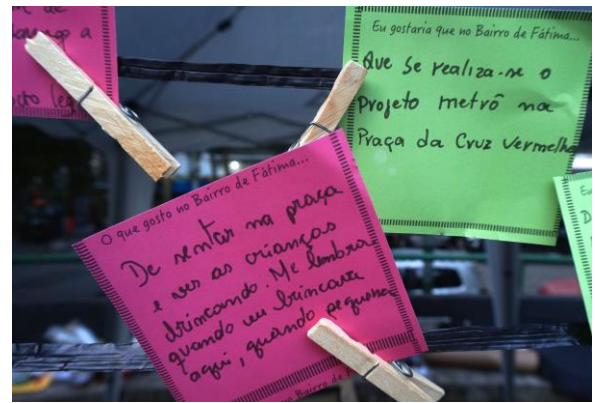 Eu gostaria que no Bairro de Fátima...
Que se realiza-se o
Projeto metrô na
Praça da Cruz Vermelha
O que gosto no Bairro de Fátima...
De sentar na praça
e ver as crianças
brincando. Me lembra
quando eu brincava
aqui, quando pequena